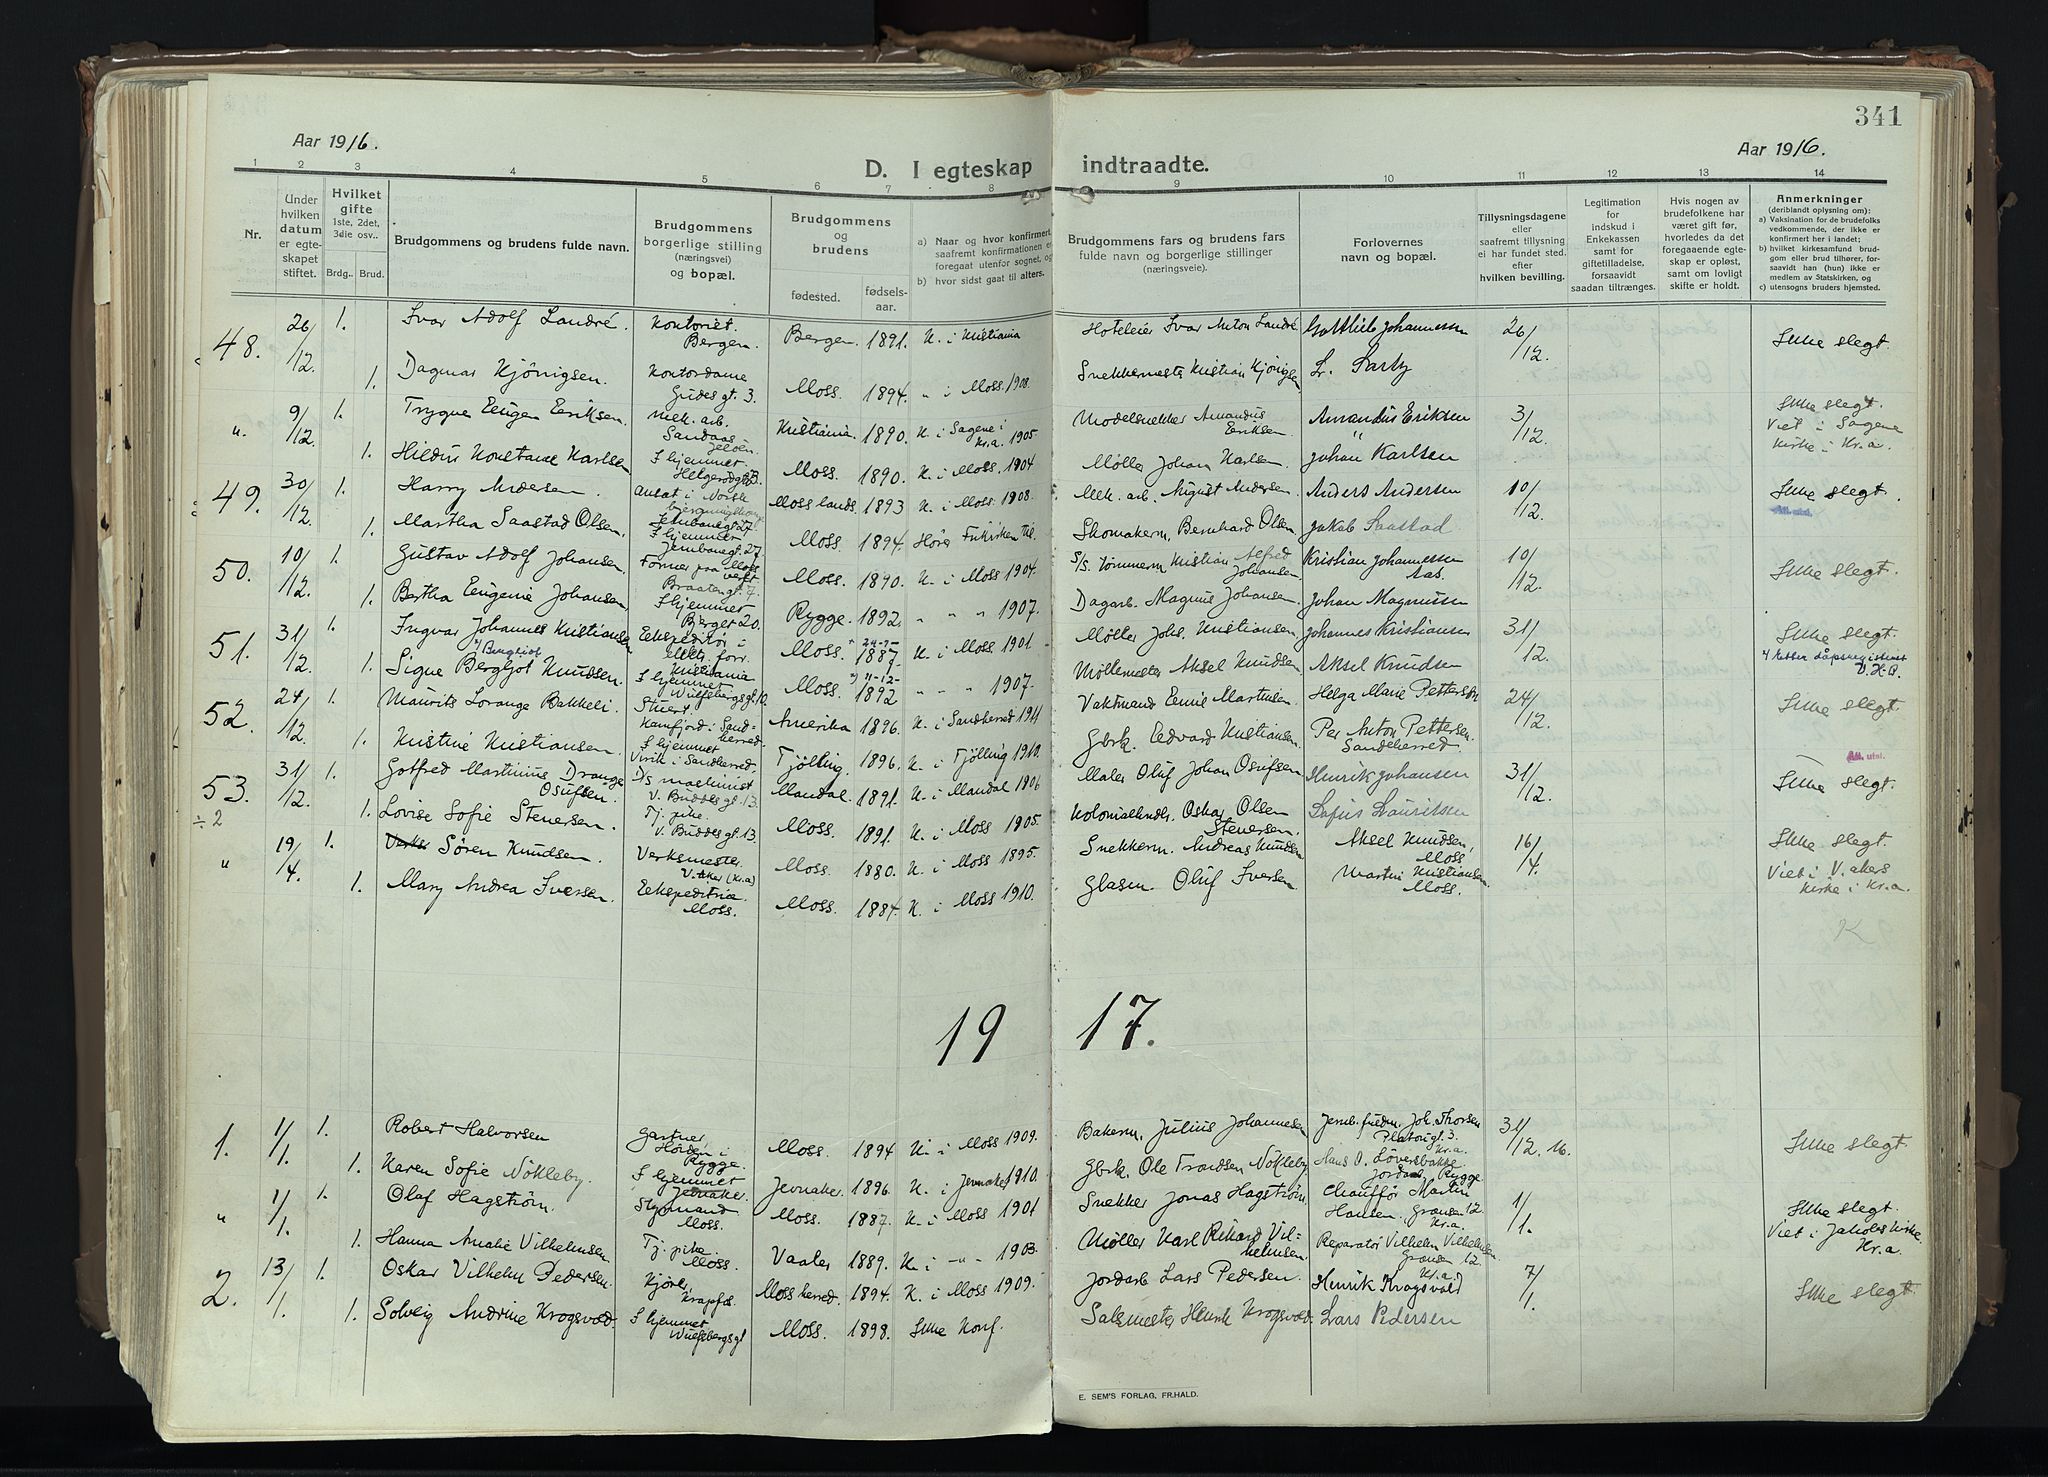 341
Aar 1916.
Aar 1916.
D. I egteskap indtraadte.
1 2 3 4 5 6 7 8 9 10 11 12 13 14
Nr.
Under hvilken datum er egteskapet stiftet.
Hvilket gifte 1ste, 2det, 3die osv..
Brdg.. Brud.
Brudgommens og brudens fulde navn.
Brudgommens borgerlige stilling (næringsvei) og bopæl.
Brudgommens og brudens
fødested. fødselsaar.
a) Naar og hvor konfirmert, saafremt konfirmationen er foregaat utenfor sognet, og
b) hvor sidst gaat til alters.
Brudgommens fars og brudens fars fulde navn og borgerlige stillinger (næringsveie).
Forlovernes navn og bopæl.
Tillysningsdagene eller saafremt tillysning ei har fundet sted. efter hvilken bevilling.
Legitimation for indskud i Enkekassen samt for giftetilladelse, forsaavidt saadan tiltrænges.
Hvis nogen av brudefolkene har været gift før, hvorledes da det foregaaende egteskap er opløst, samt om lovligt skifte er holdt.
Anmerkninger (deriblandt oplysning om):
a) Vaksination for de brudefolks vedkommende, der ikke er konfirmert her i landet;
b) hvilket kirkesamfund brudgom eller brud tilhører, forsaavidt han (hun) ikke er medlem av Statskirken, og
c) utensogns bruders hjemsted.
48. 26/12. 1. Ivar Adolf Landré. Kontorist. Bergen. Bergen. 1891. K. i Kristiania Hoteleier Ivar Anton Landré Gottlieb Johannessen 26/12. Ikke slegt.
1. Dagmar Kjönigsen. Kontordame Gudes gt. 3. Moss. 1894. " i Moss. 1908. Snekkermester Kristian Kjönigsen
" 9/12. 1. Trygve Eugen Eriksen. Mek. arb. Sandaas Jeløen. Kristiania. 1890. K. i Sagene i Kr.a. 1905. Modelsnekker Amandus Eriksen. Amandus Eriksen 3/12. Ikke slegt. Viet i Sagene Kirke i Kr.a.
1. Hildur Konstanse Karlsen I hjemmet Moss. 1890. K. i Moss. 1904 Møller Johan Karlsen. Johan Karlsen
49. 30/12. 1. Harry Andersen. Ansat i Norsk Moss lands. 1893 K. i Moss. 1908. Mek. arb. August Andersen. Anders Andersen 10/12. Ikke slegt.
1. Martha Saastad Olsen. I hjemmet Jernbanegt. 27. Moss. 1894. Hører Frikirken til. Skomakerm. Bernhard Olsen Jakob Saastad
50. 10/12. 1. Gustav Adolf Johansen. Former paa Moss verft Braatengt. 7. Moss. 1890. K. i Moss 1904. S/S. Tømmerm. Kristian Alfred Johansen Kristian Johannessen Aas. 10/12. Ikke slegt.
1. Bertha Eugenie Johansen I hjemmet Berget 20. Rygge. 1892. " " " 1907. Dagarb. Magnus Johansen. Johan Magnussen
51. 31/12. 1. Ingvar Johannes Kristiansen Ekspeditør i Elektr. forr. Kristiania Moss. 24-7- 1887. K. i Moss 1901 Møller Johs. Kristiansen. Johannes Kristiansen 31/12. Ikke slegt.
1. Signe Bergljot Knudsen. I hjemmet Wulfsbergsgt. 10. Moss. 11-12- 1892 " " " 1907. Møllemester Aksel Knudsen Aksel Knudsen Etter dåpsregisteret
52. 24/12. 1. Maurits Lorange Bakkeli. Stuert Kamfjord i Sandherred. Amerika 1896. K. i Sandherred 1911 Vaktmand Martinsen. Helga Marie Pettersen 24/12. Ikke slegt.
1. Kristine Kristiansen. I hjemmet Virik i Sandherred. Tjølling. 1896. K. i Tjølling 1910. Gbrk. Edvard Kristiansen. Per Anton Pettersen. Sandeherred.
53. 31/12. 1. Gotfred Martinius Drange Osufsen. D/s maskinist V. Buddes gt. 13. Mandal. 1891. K. i Mandal 1906 Maler Oluf Johan Osufsen Henrik Johansen 31/12. Ikke slegt.
÷2 1. Lovise Sofie Stenersen. Tj. pike. V. Buddes gt. 13. Moss. 1891. K. i Moss 1905. Kolonialhdlr. Oskar Olsen Stenersen. Sofus Lauritsen
" 19/4. 1. Søren Knudsen. Verksmester V. Aker (Kr.a) Moss. 1880. K. i Moss 1895. Snekkerm. Andreas Knudsen Aksel Knudsen, Moss. 16/4. Ikke slegt. Viet i V. Akers Kirke i Kr.a.
1. Mary Andrea Iversen. Ekspeditrice. Moss. Moss. 1884. K. i Moss 1910. Glasm. Oluf Iversen Martin Kristiansen. Moss.
K
19 17.
1. 1/1. 1. Robert Halvorsen Gartner, Høiden i Rygge. Moss. 1894 K. i Moss 1909. Bakerm. Julius Johannesen Joh. Thorsen Platousgt. 3. Kr.a. 31/12. 16. Ikke slegt.
1. Karen Sofie Nökleby. I hjemmet Jevnaker. Jevnaker. 1896. K. i Jevnaker 1910. Gbrk. Ole Trondsen Nökleby Hans O. Løversbakke Jordal Rygge
" 1/1. 1. Olaf Hagstrøm. Styrmand Moss. Moss. 1887. K. i Moss 1901 Snekker Jonas Hagstrøm Chauffør Martin Hansen. Grænsen 12. Kr.a. 1/1. Ikke slegt. Viet i Jakobs Kirke Kr.a.
1. Hanna Amalie Vilhelmsen Tj. pike. Moss. Vaaler 1889. K. i " " 1903. Møller Karl Rikard Vilhelmsen. Reparatør Vilhelm Vilhelmsen. Grænsen 12. Kr.a.
2. 13/1. 1. Oskar Vilhelm Pedersen. Kjører, Krapfos. Moss herred. 1894. K. i Moss 1909. Jordarb. Lars Pedersen. Henrik Krogsvold 7/1. Ikke slegt.
1. Solveig Andrine Krogsvold. I hjemmet Wulfsbergsgt Moss. 1898. Ikke Konf. Salmester Henrik Krogsvold. Lars Pedersen
E. SEM'S FORLAG, FR.HALD.